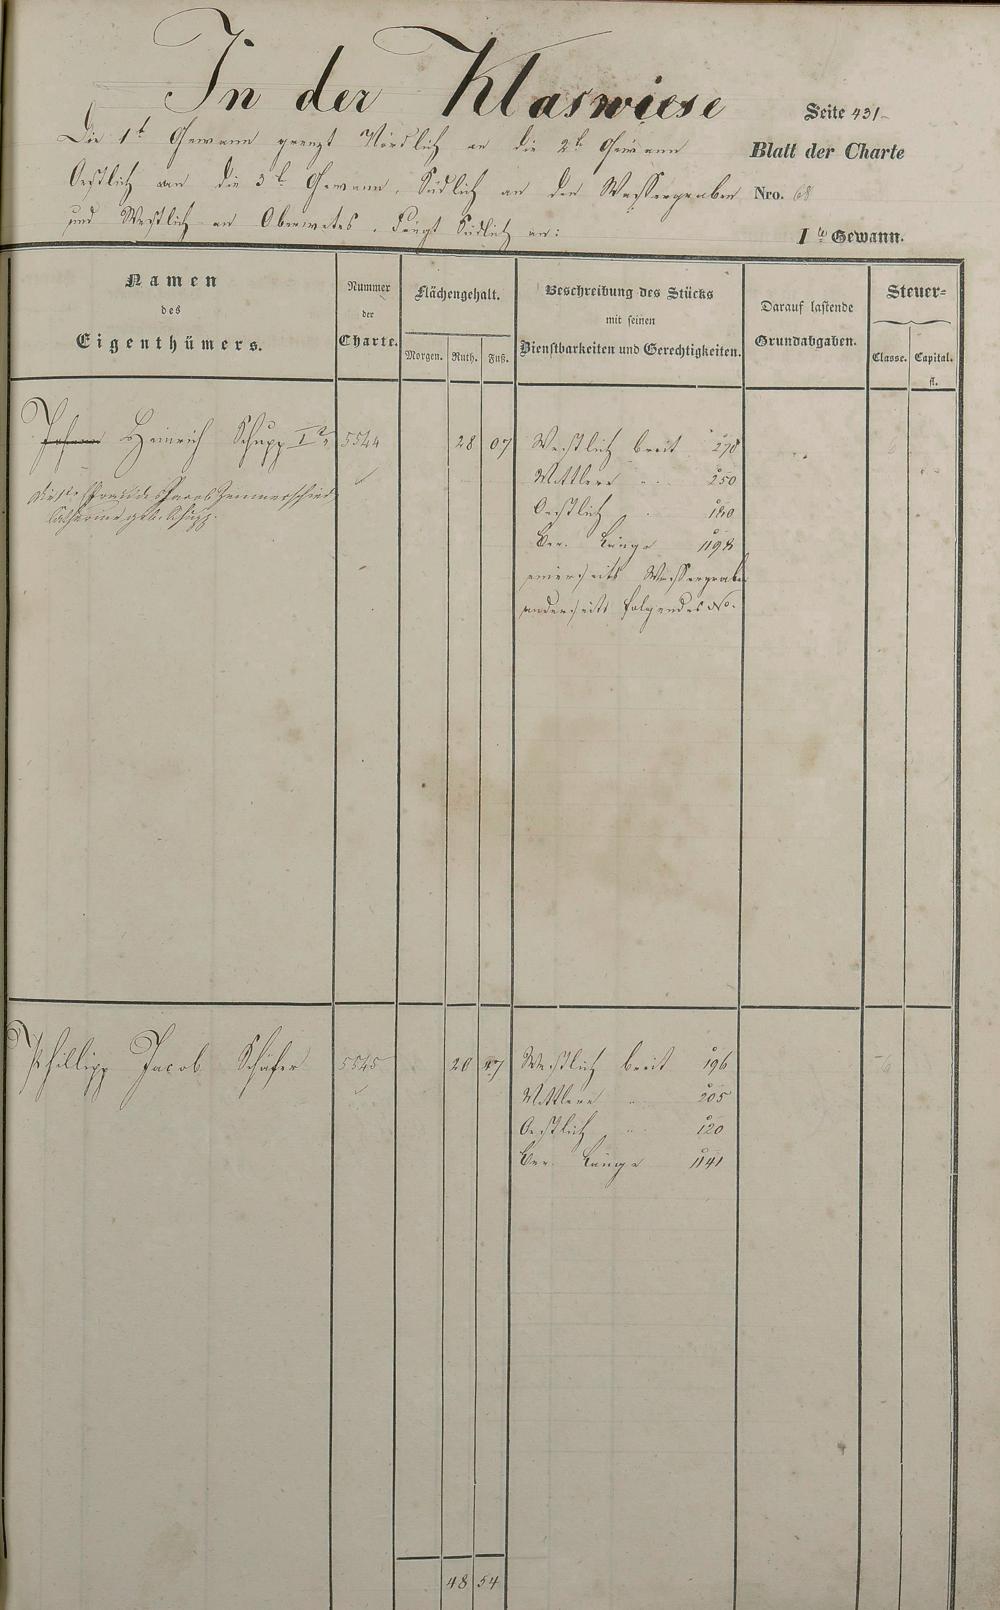 In der Klaswiese
Seite 431
Die 1te Gewann grenzt Nördlich an die 2te Gewann
Blatt der Charte
Oestlich an die 3te Gewann, Südlich an den Wassergraben
Nro. 68
und Westlich an Oberwetes. Fängt Südlich an:
1te Gewann.
Namen des Eigenthümers.
Nummer der Charte.
Flächengehalt.
Morgen. Ruth. Fuß.
Beschreibung des Stücks
mit seinen
Dienstbarkeiten und Gerechtigkeiten.
Darauf lastende
Grundabgaben.
Steuer-
Classe. Capital.
fl.
Johann Heinrich Schupp Ir 5544 28 07 Westlich breit 270
Mittlere " 250
Jacob Zimmerschied
Catharine geb. Schupp.
Oestlich 180
Ver. Länge 1198
einerseits Wassergraben
anderseits folgendes No.
Phillipp Jacob Schäfer 5545 20 47 Westlich breit 196
Mittlere " 205
Oestlich " 120
Ver. Länge 1141
48 54